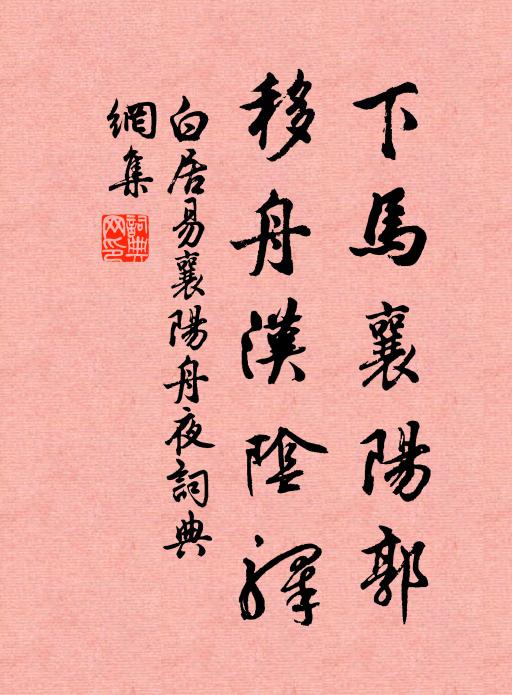 下馬襄陽郭
移舟漢陰驛
白居易襄陽舟夜詞典
網集
詞典
网印